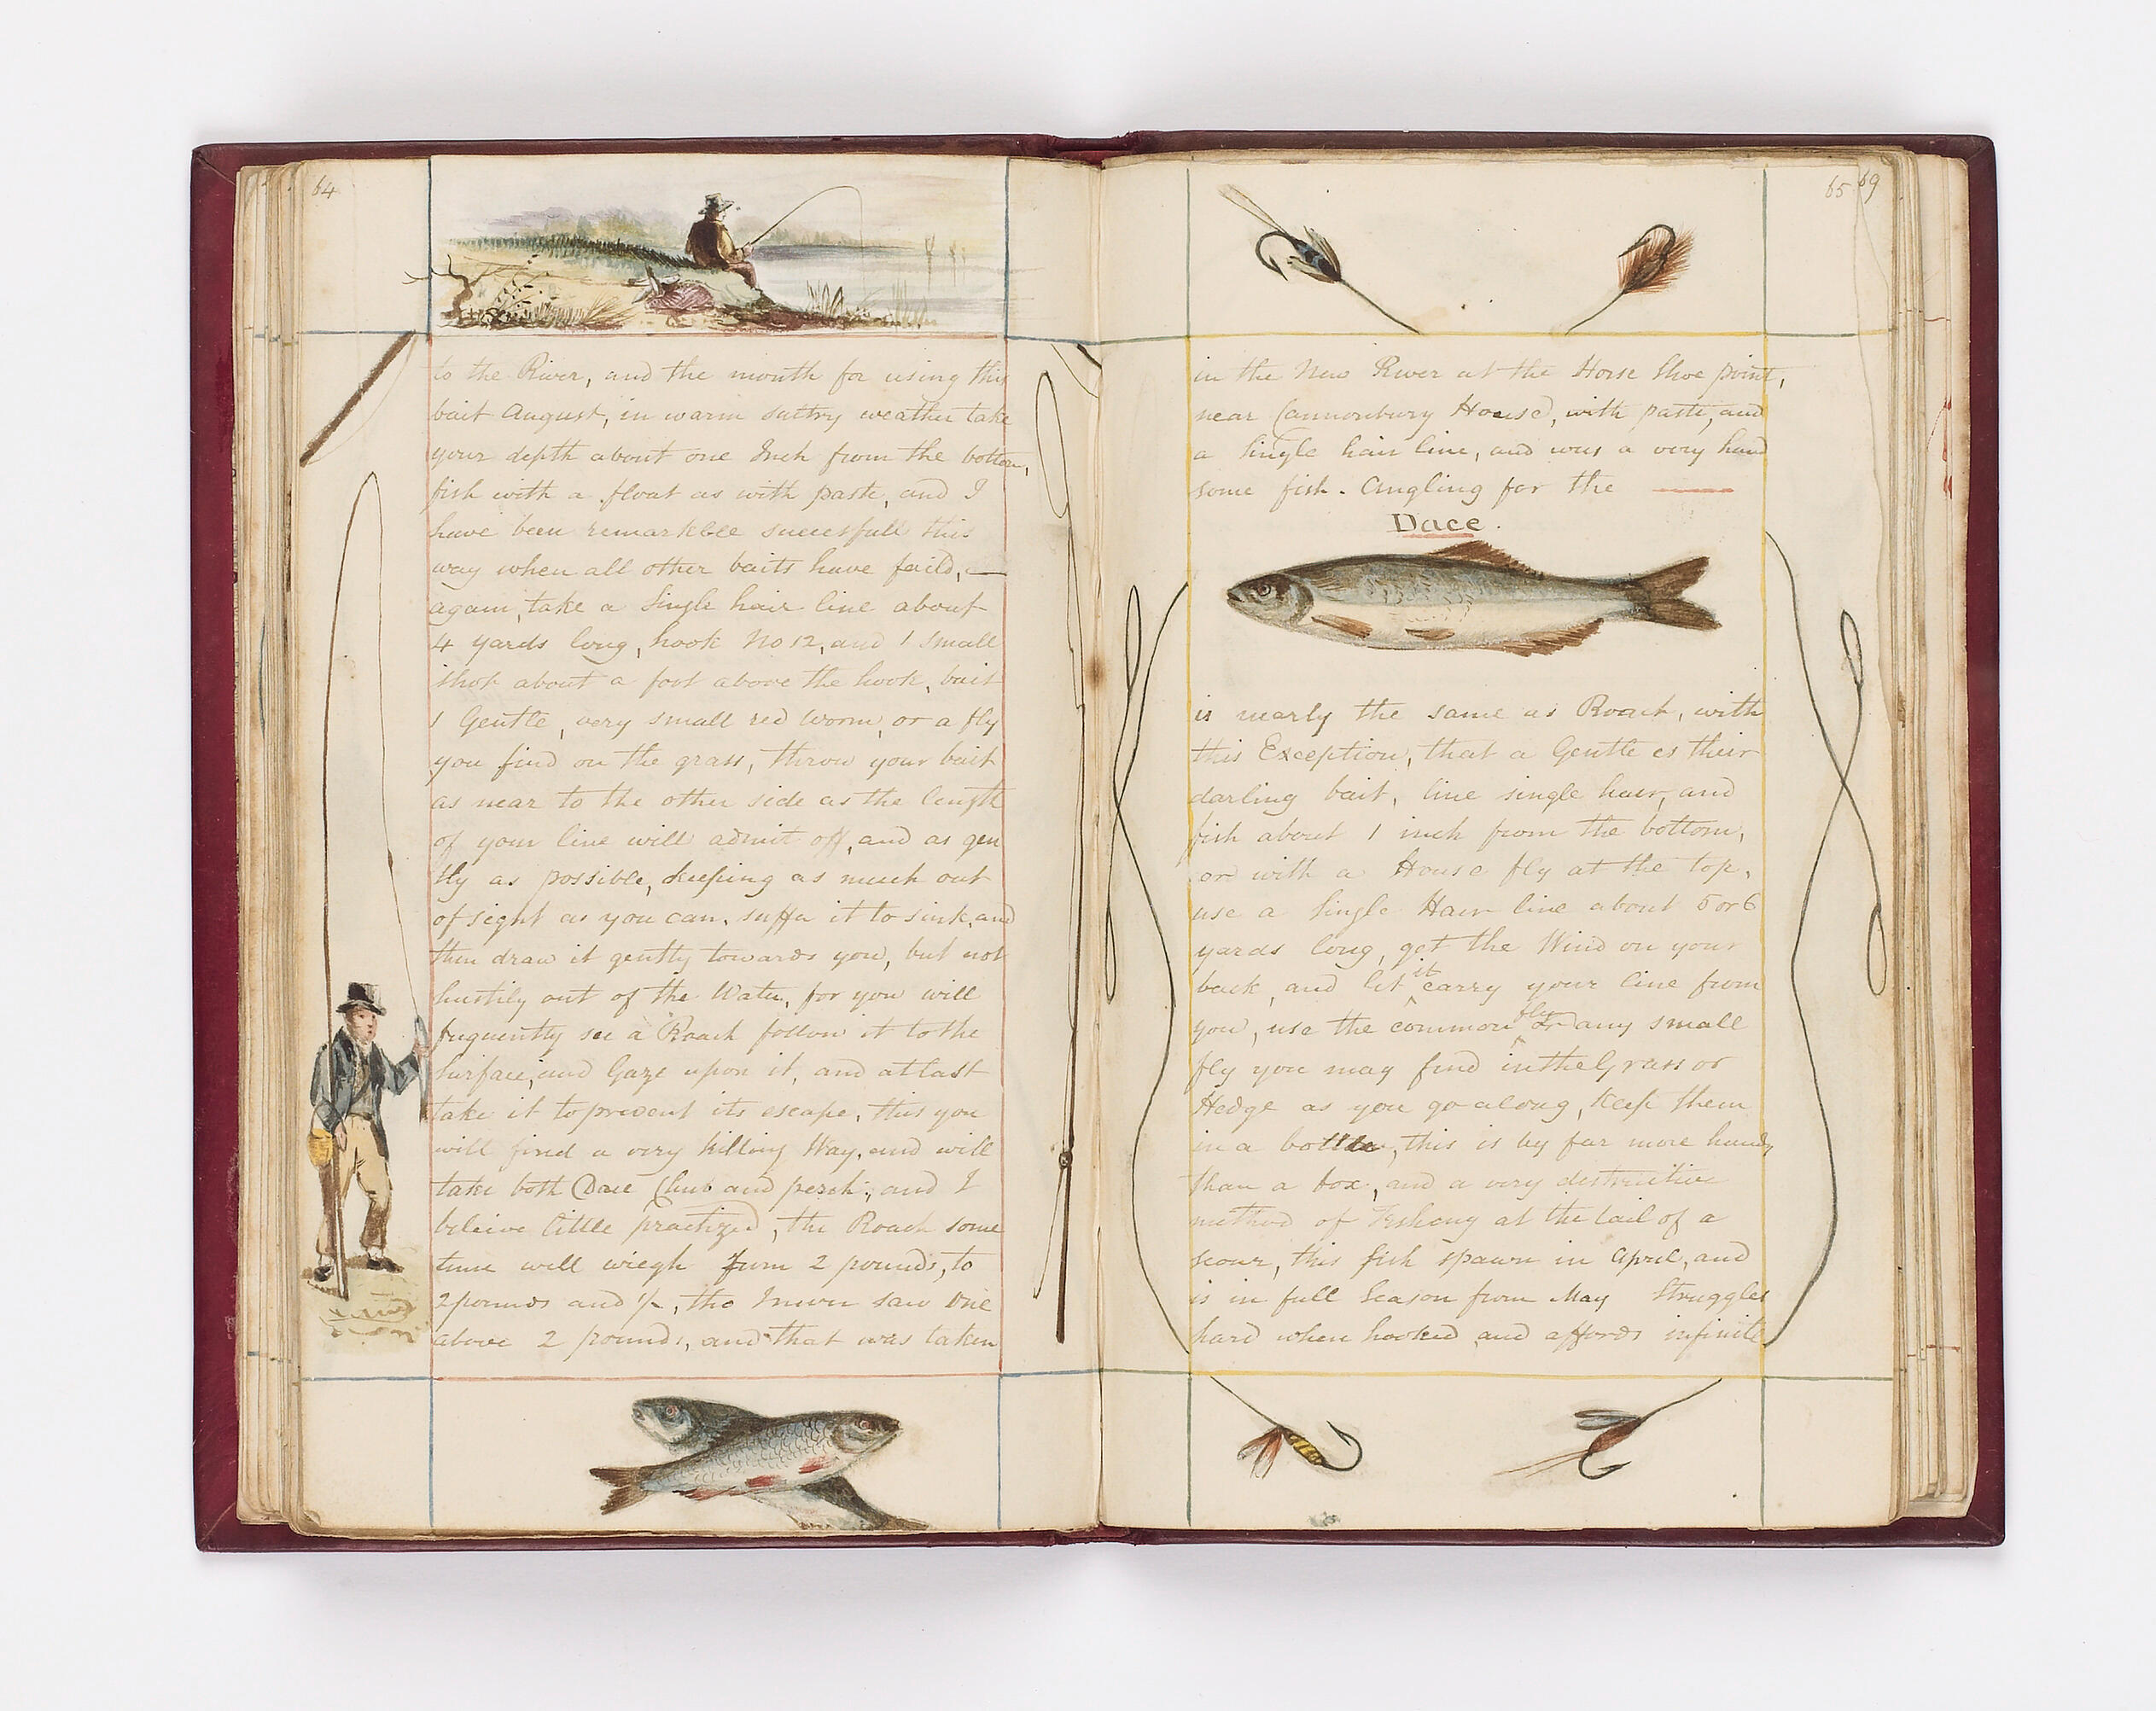 64
to the River, and the month for using this
bait August, in warm sultry weather take
your depth about one Inch from the bottom,
fish with a float as with paste, and I
have been remarkble successfull this
way when all other baits have faild, —
again, take a Single hair line about
4 yards long, hook No 12, and 1 small
shot about a foot above the hook, bait
1 Gentle, very small red worm, or a fly
you find on the grass, throw your bait
as near to the other side as the length
of your line will admit off, and as gen
tly as possible, keeping as much out
of sight as you can, suffer it to sink, and
then draw it gently towards you, but not
hastily out of the Water, for you will
frequently see a Roach follow it to the
Surface, and Gaze upon it, and at last
take it to prevent its escape, this you
will find a very killing Way, and will
take both Dace Chub and perch, and I
beleive little practized, the Roach some
time will wiegh from 2 pounds, to
2 pounds and ½, tho I never saw One
above 2 pounds, and that was taken
65 69
in the New River at the Horse Shoe point,
near Cannonbury House, with paste, and
a Single hair line, and was a very hand
some fish. Angling for the
Dace.
is nearly the same as Roach, with
this Exception, that a Gentle is their
darling bait, line single hair, and
fish about 1 inch from the bottom,
or with a House fly at the top,
use a Single Hair line about 5 or 6
yards long, get the Wind on your
back, and let it carry your line from
you, use the common fly or any small
fly you may find in the Grass or
Hedge as you go along, keep them
in a bottle, this is by far more handy
than a box, and a very distructive
method of Fishing at the tail of a
scour, this fish spawn in April, and
is in full Season from May Struggles
hard when hooked and affords infinite